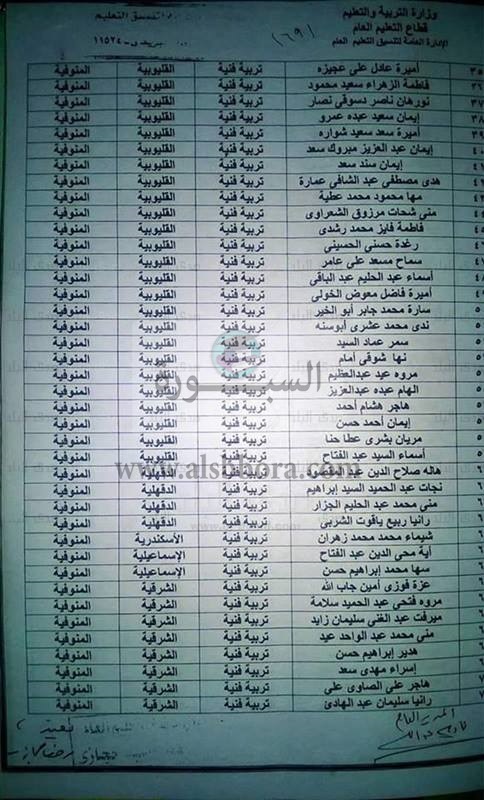 وزارة التربية والتعليم
قطاع التعليم العام
الإدارة العامة لتنسيق التعليم العام
تنسيق التعليم
١١٥٢٤
(٦٩)
٣٥ أميرة عادل على عجيزه تربية فنية القليوبية المنوفية
٣٦ فاطمة الزهراء سعيد محمود تربية فنية القليوبية المنوفية
٣٧ نورهان ناصر دسوقى نصار تربية فنية القليوبية المنوفية
٣٨ إيمان سعيد عبده عمرو تربية فنية القليوبية المنوفية
٣٩ أميرة سعد سعيد شواره تربية فنية القليوبية المنوفية
٤٠ إيمان عبد العزيز مبروك سعد تربية فنية القليوبية المنوفية
٤١ إيمان سند سعد تربية فنية القليوبية المنوفية
٤٢ هدى مصطفى عبد الشافى عمارة تربية فنية القليوبية المنوفية
٤٣ مها محمود محمد عطية تربية فنية القليوبية المنوفية
٤٤ منى شحات مرزوق الشعراوى تربية فنية القليوبية المنوفية
٤٥ فاطمة فايز محمد رشدى تربية فنية القليوبية المنوفية
٤٦ رغدة حسنى الحسينى تربية فنية القليوبية المنوفية
٤٧ سماح مسعد على عامر تربية فنية القليوبية المنوفية
٤٨ أسماء عبد الحليم عبد الباقى تربية فنية القليوبية المنوفية
٤٩ أميرة فاضل معوض الخولى تربية فنية القليوبية المنوفية
٥ سارة محمد جابر أبو الخير تربية فنية القليوبية المنوفية
٥ ندى محمد عشرى أبوسنه تربية فنية القليوبية المنوفية
٥ سمر عماد السيد تربية فنية القليوبية المنوفية
٥ نها شوقى أمام تربية فنية القليوبية المنوفية
٥ مروه عيد عبدالعظيم تربية فنية القليوبية المنوفية
٥ الهام عبده عبدالعزيز تربية فنية القليوبية المنوفية
٥ هاجر هشام أحمد تربية فنية القليوبية المنوفية
٥ إيمان أحمد حسن تربية فنية القليوبية المنوفية
٥ مريان بشرى عطا حنا تربية فنية القليوبية المنوفية
٥ أسماء السيد عبد الفتاح تربية فنية القليوبية المنوفية
٦ هاله صلاح الدين تربية فنية الدقهلية المنوفية
٦ نجات عبد الحميد السيد إبراهيم تربية فنية الدقهلية المنوفية
٦ منى محمد عبد الحليم الجزار تربية فنية الدقهلية المنوفية
٦ رانيا ربيع ياقوت الشربى تربية فنية الدقهلية المنوفية
٦ شيماء محمد محمد زهران تربية فنية الأسكندرية المنوفية
٦ آية محى الدين عبد الفتاح تربية فنية الإسماعيلية المنوفية
٦ سها محمد إبراهيم حسن تربية فنية الإسماعيلية المنوفية
٦ عزة فوزى أمين جاب الله تربية فنية الشرقية المنوفية
٦ مروه فتحى عبد الحميد سلامة تربية فنية الشرقية المنوفية
٦ ميرفت عبد الغنى سليمان زايد تربية فنية الشرقية المنوفية
٧ منى محمد عبد الواحد عيد تربية فنية الشرقية المنوفية
٧ هدير إبراهيم حسن تربية فنية الشرقية المنوفية
٧ إسراء مهدى سعد تربية فنية الشرقية المنوفية
٧ هاجر على الصاوى على تربية فنية الشرقية المنوفية
٧ رانيا سليمان عبد الهادئ تربية فنية الشرقية المنوفية
السبورة
www.alsbbora.com
المدير العام